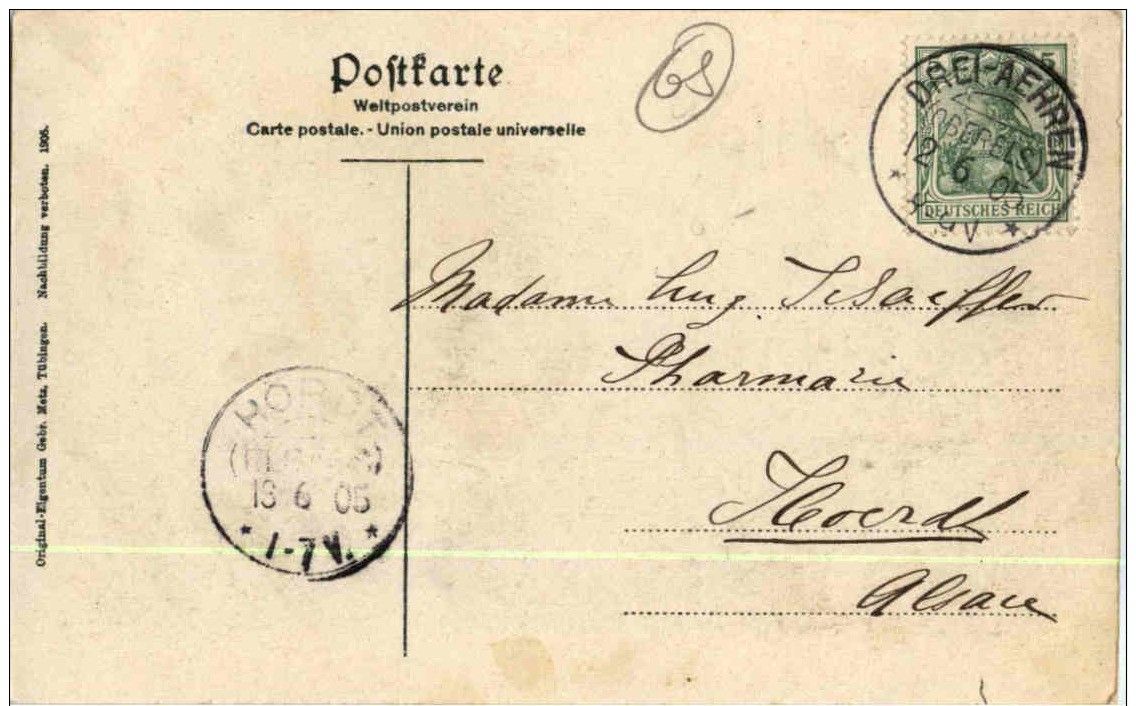 Postkarte
Weltpostverein
Carte postale. - Union postale universelle
68
5
DREI-AEHREN
(OBERELS.)
12 6 05
V
DEUTSCHES REICH
Madame Eug. Schaeffer
Pharmacie
Hoerdt
Alsace
HÖRDT
13 6 05
* 1-7 V. *
Original-Eigentum Gebr. Metz, Tübingen. Nachbildung verboten. 1905.